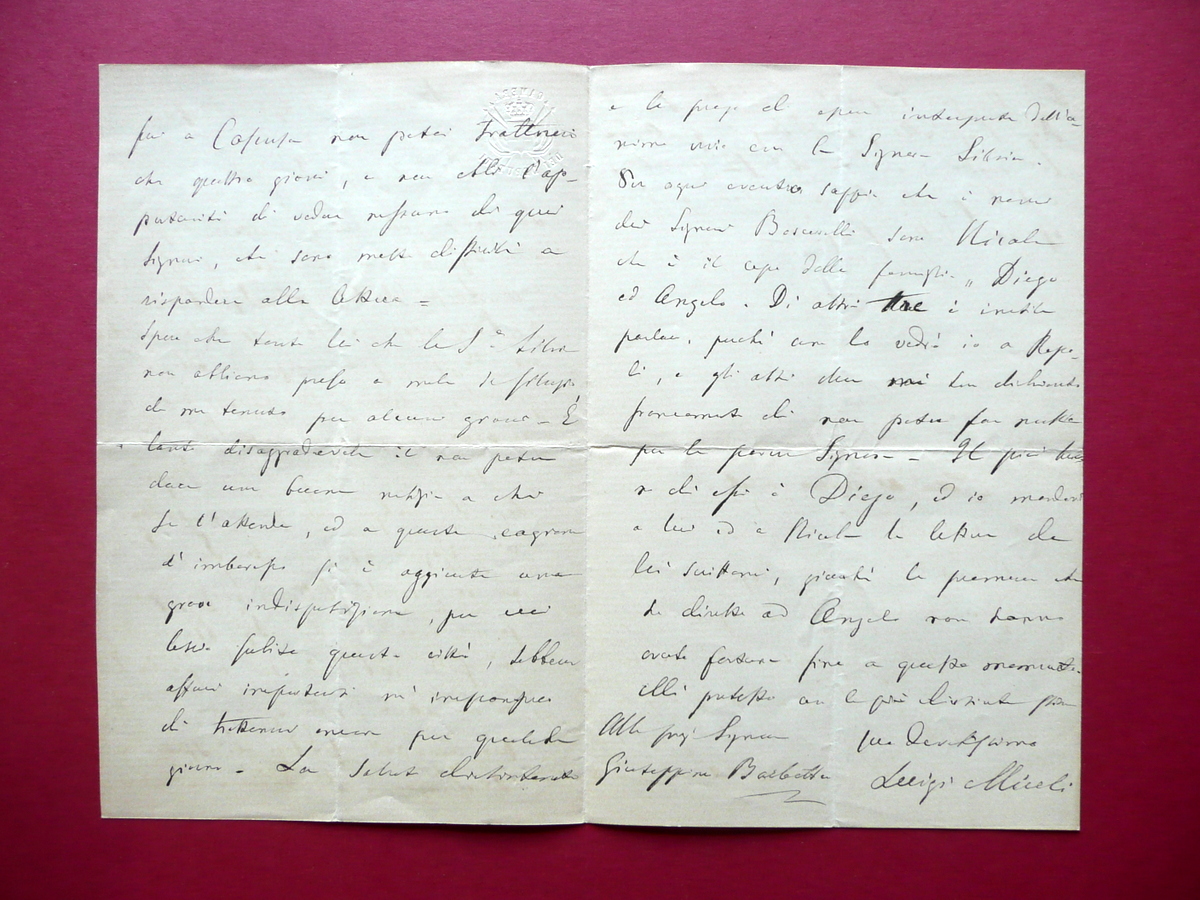 poi a Cosenza non potei trattenermi
che quattro giorni, e non ebbi l'op-
portunità di veder nessuno di quei
Signori, che sono molto difficili a
rispondere alle lettere =
Spero che tanto lei che la S.a Silvia
non abbiano preso a male il silenzio
da me tenuto per alcuni giorni - È
tanto disaggradevole il non poter
dare una buona notizia a chi
se l'attende, ed a questa cagione
d'imbarazzo si è aggiunta una
grave indisposizione, per cui
lascio subito questa città, sebbene
affari importanti m'impongano
di trattenermi ancora per qualche
giorno - La saluto distintamente
e la prego di esser interprete dell'a-
nimo mio con la Signora Silvia.
Per ogni evento sappia che i nomi
dei Signori Boscarelli sono Nicola
che è il capo della famiglia, Diego
ed Angelo. Di altri tre è inutile
parlare, perchè uno lo vedrò io a Napo-
li, e gli altri due mi han dichiarato
francamente di non poter far nulla
per la povera Signora - Il più
di essi è Diego, ed io manderei
a lui ed a Nicola le lettere da
lei scrittemi, giacchè le premure che
ho dirette ad Angelo non hanno
avuto fortuna fino a questo momento.
con la più distinta stima
Alla Signora
Giuseppina Barbetta
suo devotissimo
Luigi Miceli